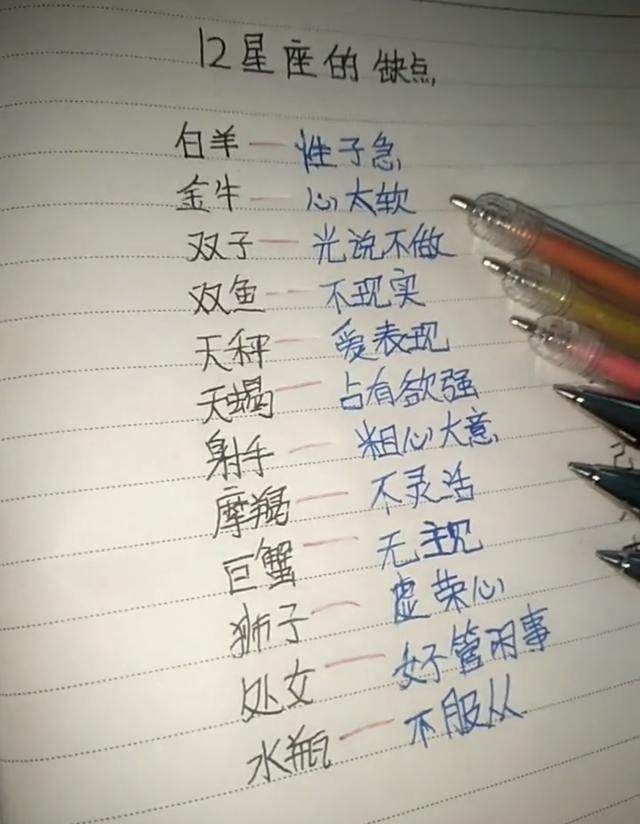 12星座的缺点
白羊一性子急
金牛一心太软
双子一光说不做
双鱼一不现实
天秤一爱表现
天蝎一占有欲强
射手一粗心大意
摩羯一不灵活
巨蟹一无主见
狮子一虚荣心
处女一好管闲事
水瓶一不服从